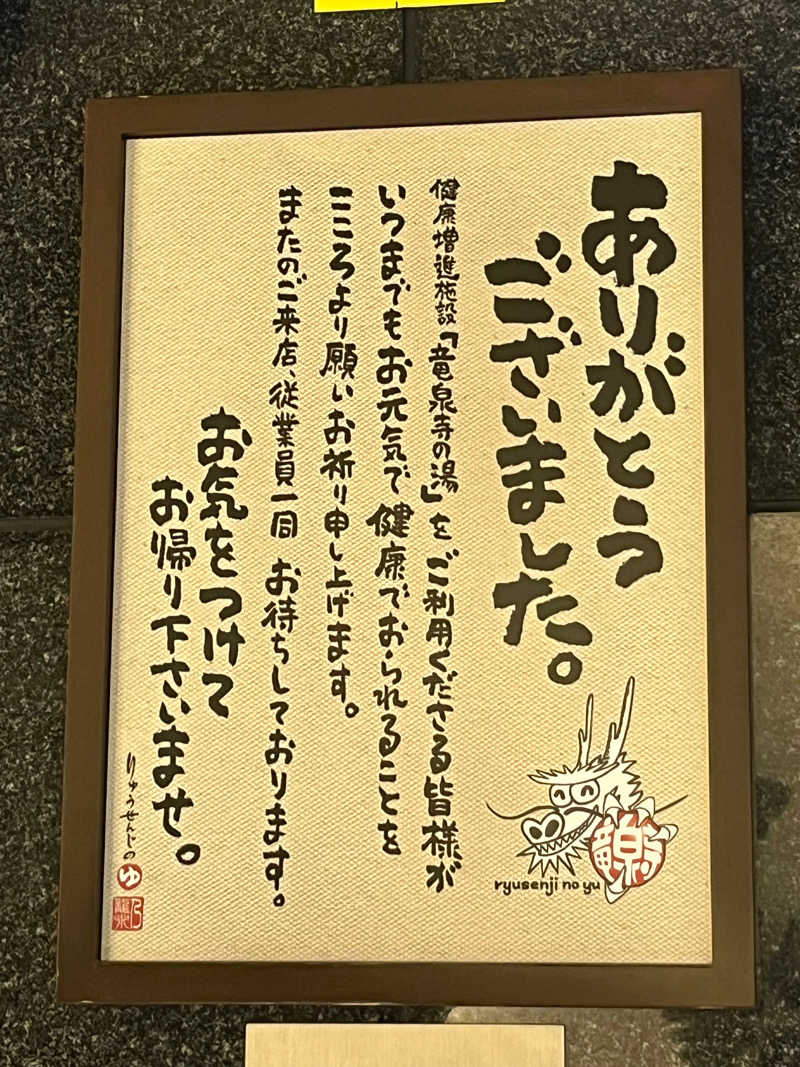 ありがとう
ございました。
健康増進施設「竜泉寺の湯」をご利用くださる皆様が
いつまでもお元気で健康でおられることを
こころより願いお祈り申し上げます。
またのご来店、従業員一同 お待ちしております。
お気をつけて
お帰り下さいませ。
りゅうせんじの
ゆ
竜泉寺
ryusenji no yu